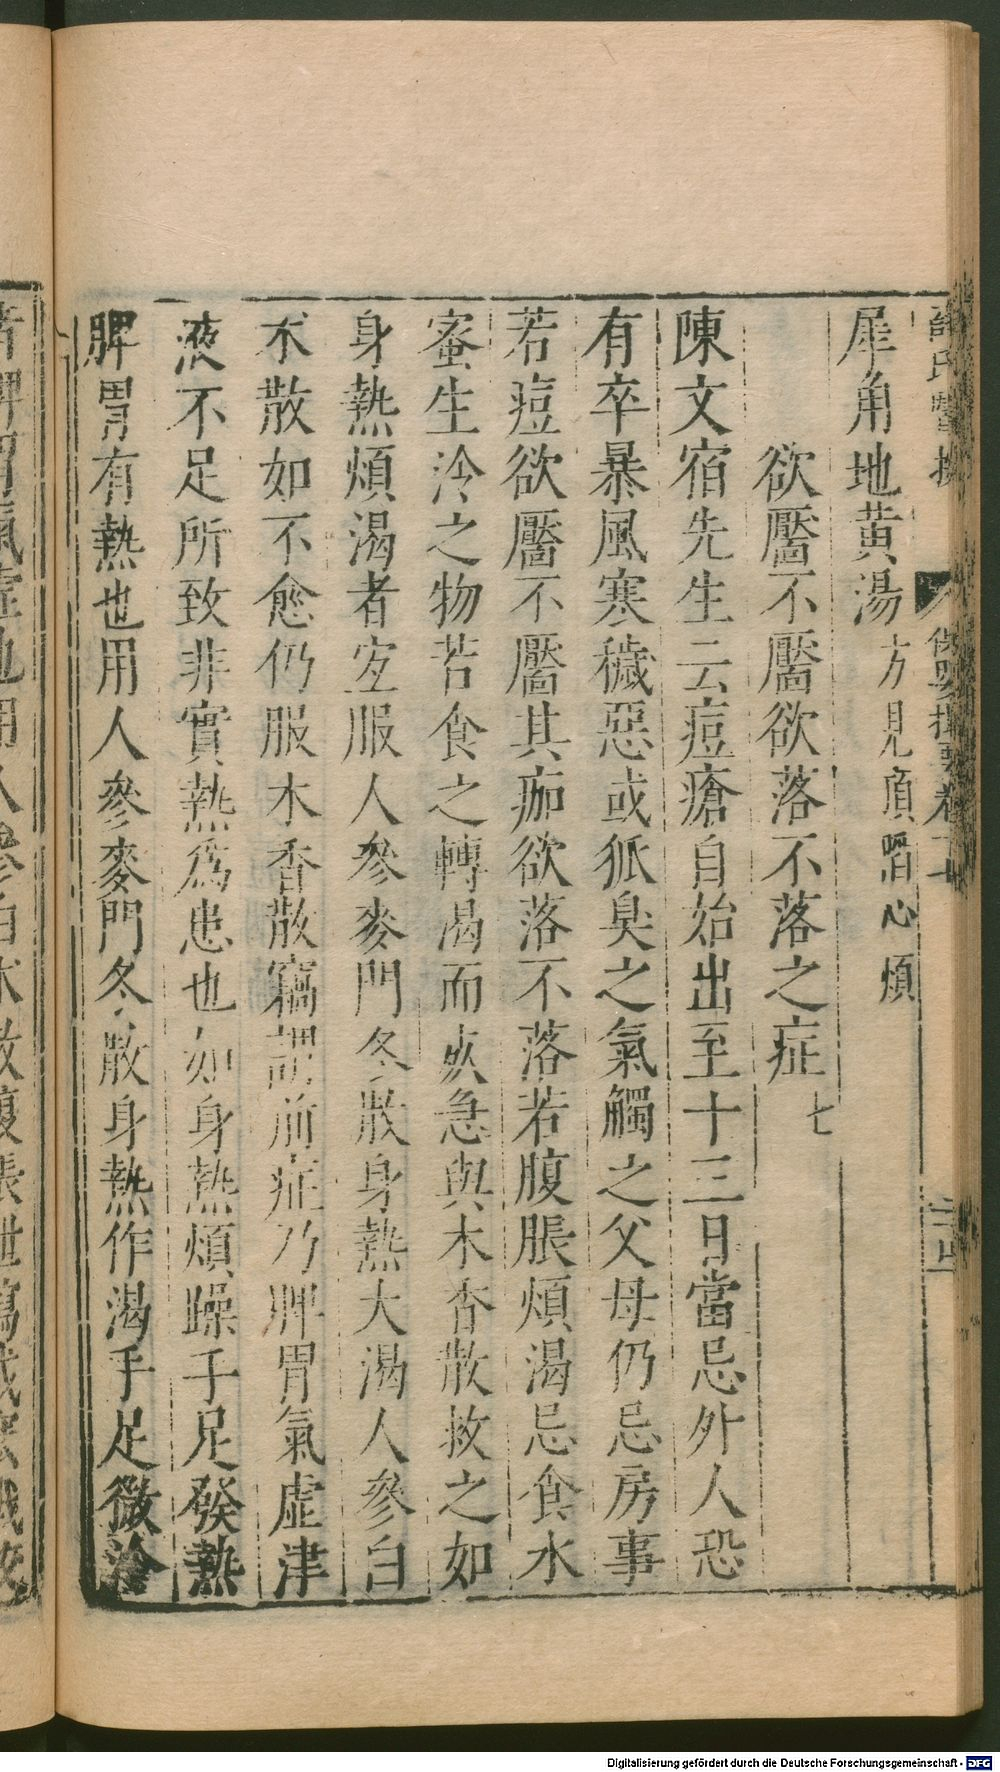 犀角地黄湯方見頂陷心煩
欲靨不靨欲落不落之症七
陳文宿先生云痘瘡自始出至十三日當忌外人恐
有卒暴風寒穢惡或狐臭之氣觸之父母仍忌房事
若痘欲靨不靨其痂欲落不落若腹脹煩渴忌食水
蜜生冷之物若食之轉渴而死急與木香散救之如
身熱煩渴者宜服人參麥門冬散身熱大渴人參白
朮散如不愈仍服木香散竊謂前症乃脾胃氣虛津
液不足所致非實熱爲患也如身熱煩躁手足發熱
脾胃有熱也用人參麥門冬散身熱作渴手足微冷
Digitalisierung gefördert durch die Deutsche Forschungsgemeinschaft - DFG